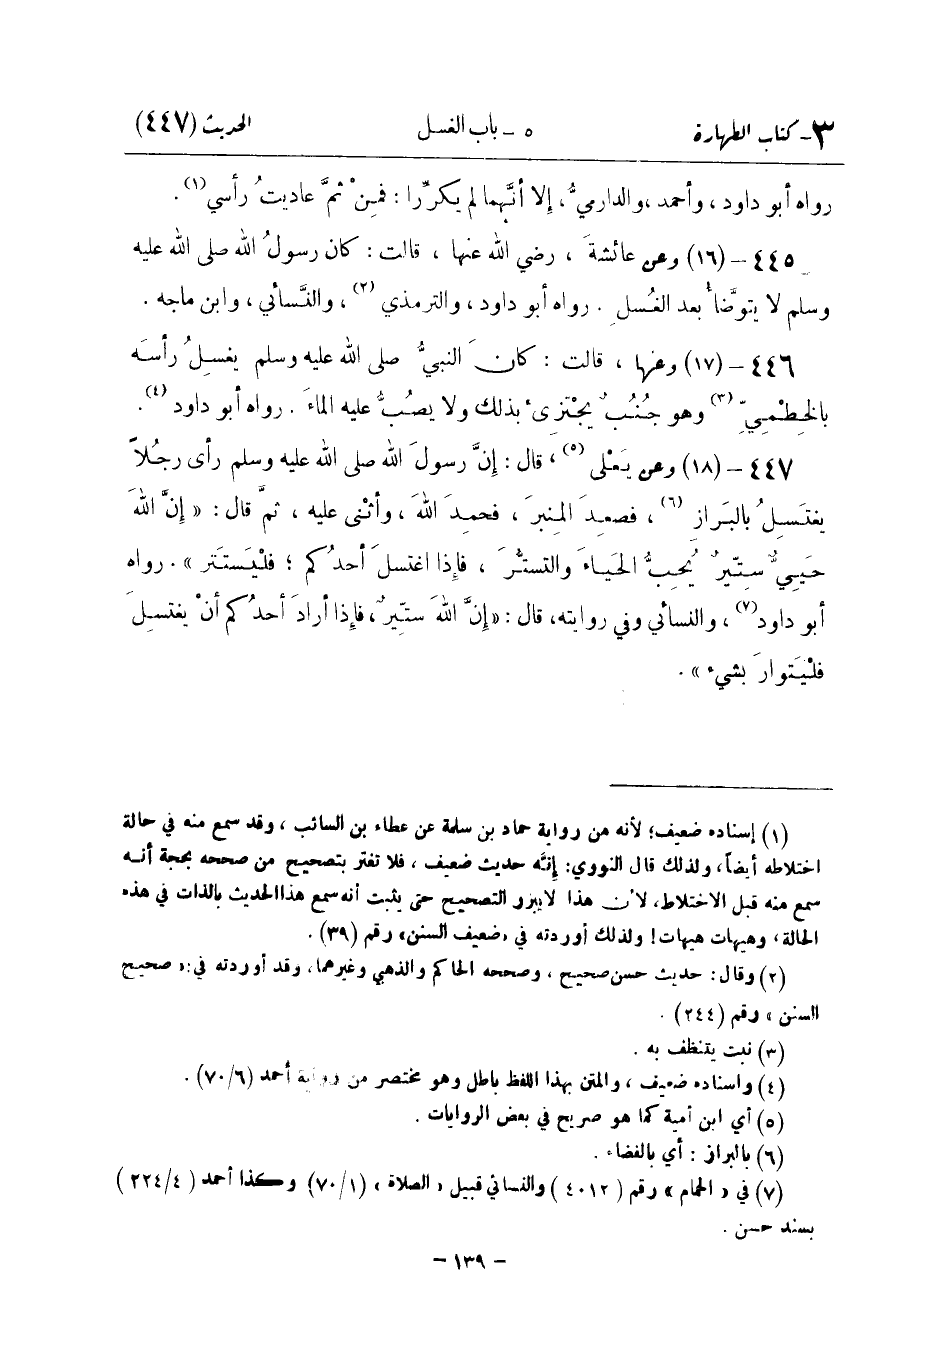 ٣- كتاب الطهارة ٥ - باب الغسل الحديث (٤٤٧)
رواه أبو داود ، وأحمد ،والدارميُّ، إلا أنَّهما لم يكرِّرا : فمِنْ ثمَّ عاديتُ رأسي(١).
٤٤٥ - (١٦) وعن عائشةَ ، رضي الله عنها ، قالت : كان رسولُ الله صلى الله عليه
وسلم لا يتوضَّأ بعد الغُسلِ . رواه أبو داود ، والترمذي(٢) ، والنَّسائي ، وابن ماجه .
٤٤٦ - (١٧) وعنها ، قالت : كانَ النبيُّ صلى الله عليه وسلم يغسلُ رأسَه
بالخِطْميِّ(٣) وهو جُنُبٌ يجْتزىءُ بذلك ولا يصُبُّ عليه الماءَ . رواه أبو داود(٤).
٤٤٧ - (١٨) وعن يَعْلى(٥) ، قال : إنَّ رسولَ الله صلى الله عليه وسلم رأى رجُلاً
يغتَسِلُ بالبَرازِ(٦) ، فصعِدَ المِنبرَ ، فحمِدَ اللهَ ، وأثنى عليه ، ثمَّ قال : « إنَّ اللهَ
حَيِيٌّ سِتِّيرٌ يُحِبُّ الحَياءَ والتستُّرَ ، فإذا اغتسلَ أحدُكم ؛ فلْيَستَتر » . رواه
أبو داود(٧) ، والنسائي وفي روايته، قال : «إنَّ اللهَ ستِّيرٌ، فإذا أرادَ أحدُكم أنْ يغتسِلَ
فلْيَتوارَ بشيءٍ » .
(١) إسناده ضعيف؛ لأنه من رواية حماد بن سلمة عن عطاء بن السائب ، وقد سمع منه في حالة
اختلاطه أيضاً، ولذلك قال النووي: إنَّه حديث ضعيف ، فلا تغتر بتصحيح من صححه بحجة أنه
سمع منه قبل الاختلاط، لأن هذا لايبرر التصحيح حتى يثبت أنه سمع هذاالحديث بالذات في هذه
الحالة، وهيهات هيهات! ولذلك أوردته في «ضعيف السنن» رقم (٣٩) .
(٢) وقال : حديث حسن صحيح ، وصححه الحاكم والذهبي وغيرهما، وقد أوردته في:« صحيح
السنن » رقم (٢٤٤) .
(٣) نبت يتنظف به .
(٤) واسناده ضعيف ، والمتن بهذا اللفظ باطل وهو مختصر من رواية أحمد (٧٠/٦) .
(٥) أي ابن أمية كما هو صريح في بعض الروايات .
(٦) بالبراز : أي بالفضاء .
(٧) في « الحمام » رقم ( ٤٠١٢ ) والنسائي قبيل « الصلاة » (٧٠/١) وكذا أحمد ( ٢٢٤/٤ )
بسند حسن .
- ١٣٩ -